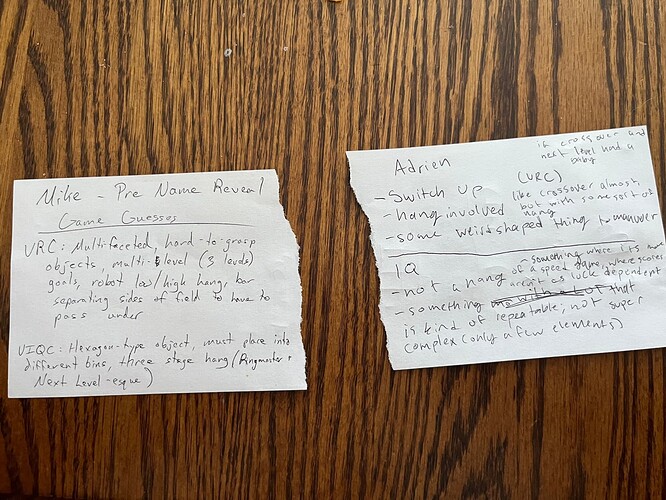 Mike - Pre Name Reveal
Game Guesses
VRC: Multifaceted, hard-to-grasp
objects, multi-level (3 levels)
goals, robot low/high hang, bar
separating sides of field to have to
pass under
VIQC: Hexagon-type object, must place into
different bins, three stage hang (Ringmaster +
Next Level-esque)
if crossover and
next level had a
baby
Adrien
(VRC)
- Switch up
like crossover almost,
but with some sort of
hang
- hang involved
- some weird shaped thing to maneuver
IQ
- something where its more
of a speed game, where scores
arent as luck dependent
- not a hang
- something that
is kind of repeatable, not super
complex (only a few elements)